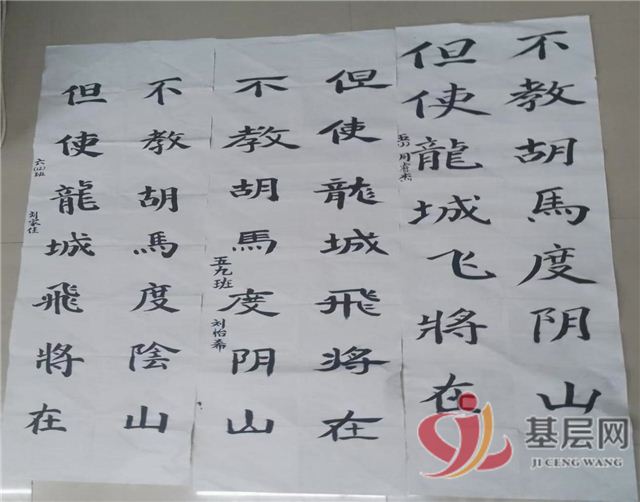 但使龍城飛將在
不教胡馬度陰山
班
但使龍城飛將在
不教胡馬度阴山
五九班
刘怡希
但使龍城飞將在
不教胡馬度阴山
基层网
JI CENG WANG